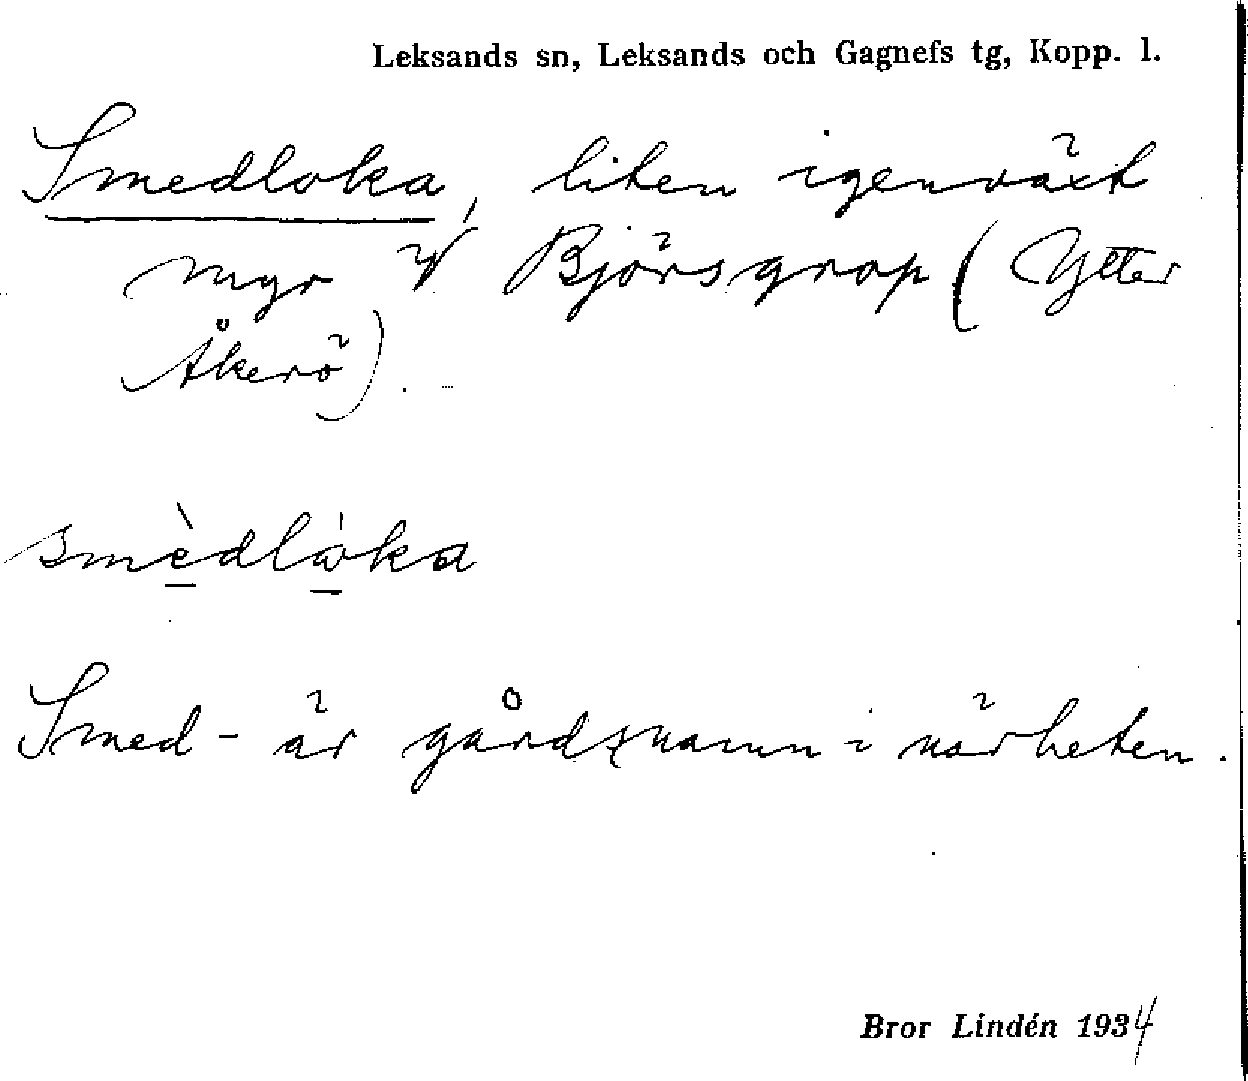 Leksands sn, Leksands och Gagnefs tg, Kopp. l.
Smedloka, liten igenväxt
myr v Björsgrop (Ytter
Åkerö).
smèdlòka
Smed- är gårdsnamn i närheten.
Bror Lindén 1934